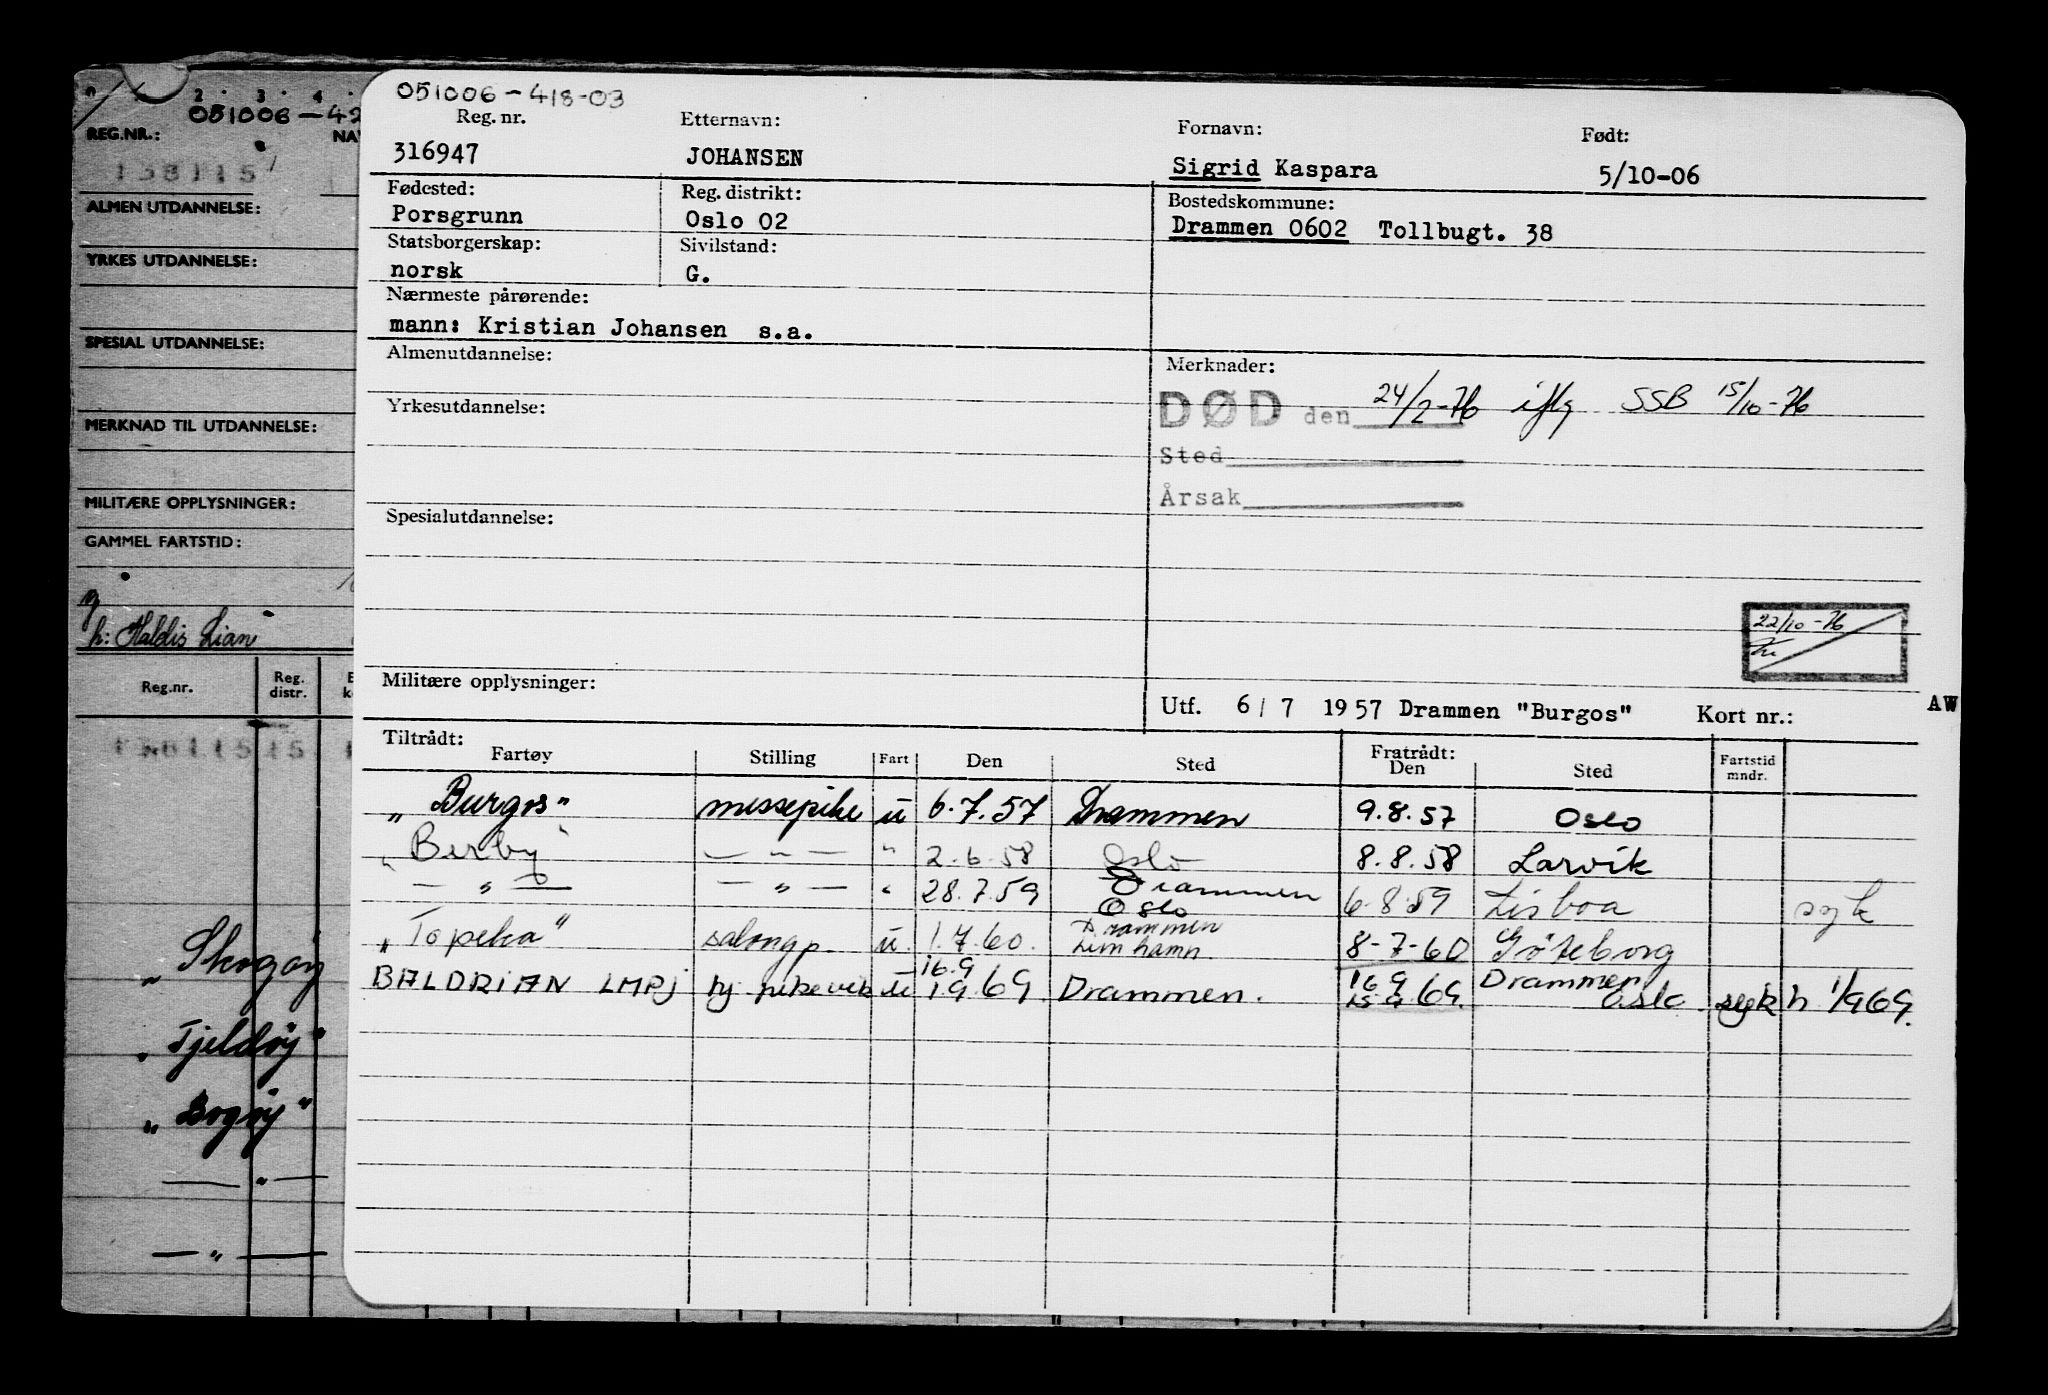 0 2 · 3 · 4 ·
051006-42
REG.NR.: NAV
138115
ALMEN UTDANNELSE:
YRKES UTDANNELSE:
SPESIAL UTDANNELSE:
MERKNAD TIL UTDANNELSE:
MILITÆRE OPPLYSNINGER:
GAMMEL FARTSTID:
g
h: Haldis Lian
Reg.nr. Reg. distr.
„Skogøy
„Tjeldøy"
„Bogøy"
— „ —
— „ —
051006-418-03
Reg. nr. Etternavn: Fornavn: Født:
316947 JOHANSEN Sigrid Kaspara 5/10-06
Fødested: Reg. distrikt: Bostedskommune:
Porsgrunn Oslo 02 Drammen 0602 Tollbugt. 38
Statsborgerskap: Sivilstand:
norsk G.
Nærmeste pårørende:
mann: Kristian Johansen s.a.
Almenutdannelse: Merknader:
DØD den 24/2-76 iflg SSB 15/10-76
Yrkesutdannelse:
Sted
Årsak
Spesialutdannelse:
22/10-76
Militære opplysninger:
Utf. 6/7 1957 Drammen "Burgos" Kort nr.: AW
Tiltrådt: Fratrådt:
Fartøy Stilling Fart Den Sted Den Sted Fartstid mndr.
„Burgos" messepike u 6.7.57 Drammen 9.8.57 Oslo
„Berby" — „ — " 2.6.58 Oslo 8.8.58 Larvik
— „ — — „ — " 28.7.59 Drammen Oslo 6.8.59 Lisboa syk
„Topeka" salongp. u. 1.7.60. Drammen Limhamn. 8-7-60 Göteborg
BALDRIAN LMPJ hj. pikevik u 16.9 1969. Drammen. 16 9 15 9 69. Drammen Oslo. syk h 1/9 69.